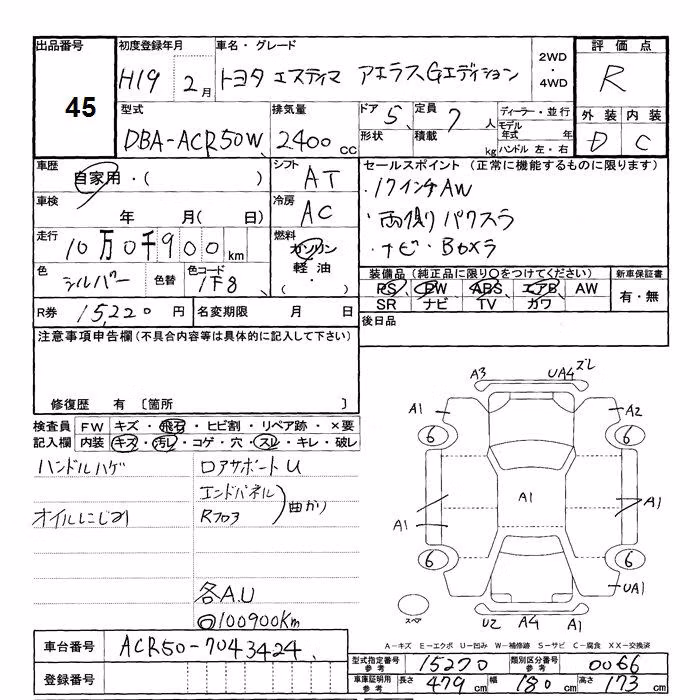 出品番号 初度登録年月 車名・グレード 2WD・4WD 評価点
45 H19 2月 トヨタ エスティマ アエラスGエディション R
型式 排気量 ドア 5 定員 7人 ディーラー・並行 外装 内装
DBA-ACR50W 2400cc 形状 積載 kg モデル年式 年 D C
ハンドル 左・右
車歴 自家用・( ) シフト AT セールスポイント (正常に機能するものに限ります)
車検 年 月( 日) 冷房 AC ・17インチAW
・両側パワスラ
走行 10万0千900km 燃料 ガソリン 軽油・ ・ナビ・Bカメラ
色 シルバー 色替 色コード 1F8 ( )
装備品 (純正品に限り○をつけてください) 新車保証書
PS PW ABS エアB AW 有・無
SR ナビ TV カワ
R券 15,220円 名変期限 月 日 後日品
注意事項申告欄 (不具合内容等は具体的に記入して下さい)
修復歴 有 〔箇所 〕
検査員 FW キズ・飛石・ヒビ割・リペア跡・×要
記入欄 内装 キズ・汚レ・コゲ・穴・スレ・キレ・破レ
ハンドルハゲ ロアサポートU
エンドパネル
オイルにじみ Rフロア 曲がり
各A.U
◎100900Km
A3 UA4 ズレ
A1 A2
6 6
A1 A1 A1
6 6
UA1
スペア U2 A4 A1
A-キズ E-エクボ U-凹み W-補修跡 S-サビ C-腐食 XX-交換済
車台番号 ACR50-7043424
登録番号
型式指定番号 参考 15270 類別区分番号 参考 0066
車庫証明用 参考 長さ 479cm 幅 180cm 高さ 173cm